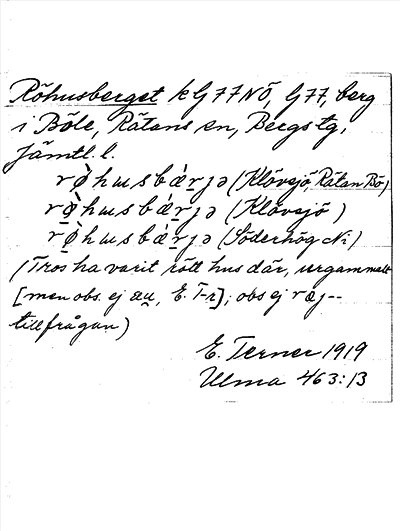 Röhusberget k G 77 NÖ, G 77, berg
i Böle, Rätans sn, Bergs tg,
Jämtl. l.
rø̀husbæ̀rjə (Klövsjö, Rätan Bö)
rø̀husbæ̀rjə (Klövsjö)
rø̀husbæ̀rjə (Söderhög
(Tros ha varit rött hus där, urgammalt
[men obs. ej au, E. T-r]; obs ej ræj--
tillfrågan)
E. Terner 1919
Ulma 463:13